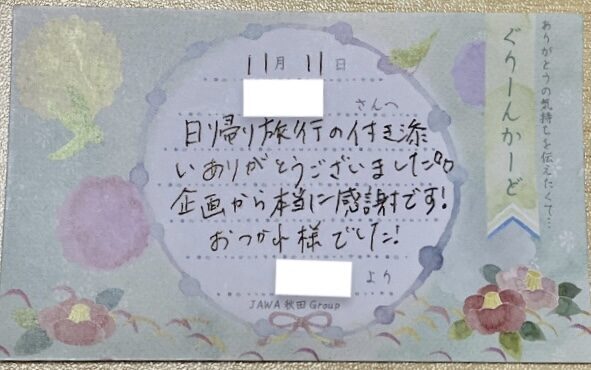 ありがとうの気持ちを伝えたくて…
ぐりーんかーど
11月11日
さんへ
日帰り旅行の付き添
いありがとうございました。
企画から本当に感謝です!
おつかれ様でした!
より
JAWA秋田Group